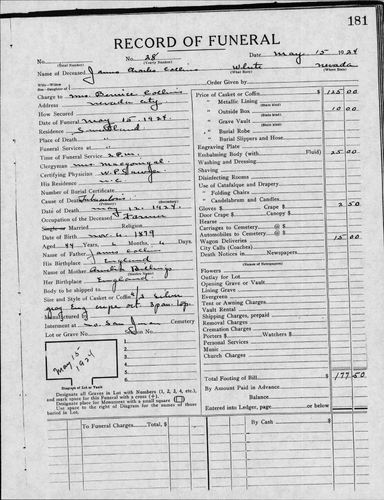 181
RECORD OF FUNERAL
No. No. 28 Date May 15 1924
(Total Number) (Yearly Number)
Name of Deceased James Charles Collins White Nevada
(What Race) (Where Born)
Charge to Mrs. Bernice Collins
Address Nevada City
How Secured
Date of Funeral May 15 1924
Residence
Place of Death
Funeral Services at
Time of Funeral Service 2 P.M.
Clergyman Mr.
Certifying Physician W.P. Sawyer
His Residence N.C.
Number of Burial Certificate
Cause of Death Tuberculosis
Date of Death 12, 1924
Occupation of the Deceased Farmer
Single or Married Religion
Date of Birth Nov. 6 1879
Aged 44 Years, 6 Months, 6 Days
Name of Father James Collins
His Birthplace England
Name of Mother
Her Birthplace England
Body to be shipped to
Size and Style of Casket or Coffin 6/3 Silver
gray
Manufactured by
Interment at Cemetery
Lot or Grave No.
May 15
1924
1
2
3
4
5
6
7
8
Diagram of Lot or Vault
Designate all Graves in Lot with Numbers (1, 2, 3, 4, etc.),
and mark space for this Funeral with a cross (+).
Designate place for Monument with a small square
Use space to right of Diagram for the names of those
buried in Lot.
Order Given by
Price of Casket or Coffin $ 125 00
" Metallic Lining
" Outside Box 10 00
" Grave Vault
" Burial Robe
" Burial Slippers and Hose
Engraving Plate
Embalming Body (with Fluid) 25 00
Washing and Dressing
Shaving
Disinfecting Rooms
Use of Catafalque and Drapery
" Folding Chairs
" Candelabrum and Candles
Gloves $ Crape $ 2 50
Door Crape $ Canopy $
Hearse
Carriages to Cemetery @ $
Automobiles to Cemetery @ $
Wagon Deliveries 15 00
City Calls (Coaches)
Death Notices in Newspapers
(Names of Newspapers)
Flowers
Outlay for Lot
Opening Grave or Vault
Lining Grave
Evergreen
Tent or Awning Charges
Vault Rental
Shipping Charges, prepaid
Removal Charges
Cremation Charges
Porters $ Watchers $
Personal Services
Music
Church Charges
Total Footing of Bill $ 177 50
By Amount Paid in Advance
Balance
Entered into Ledger, page or below
To Funeral Charges $ By Cash $